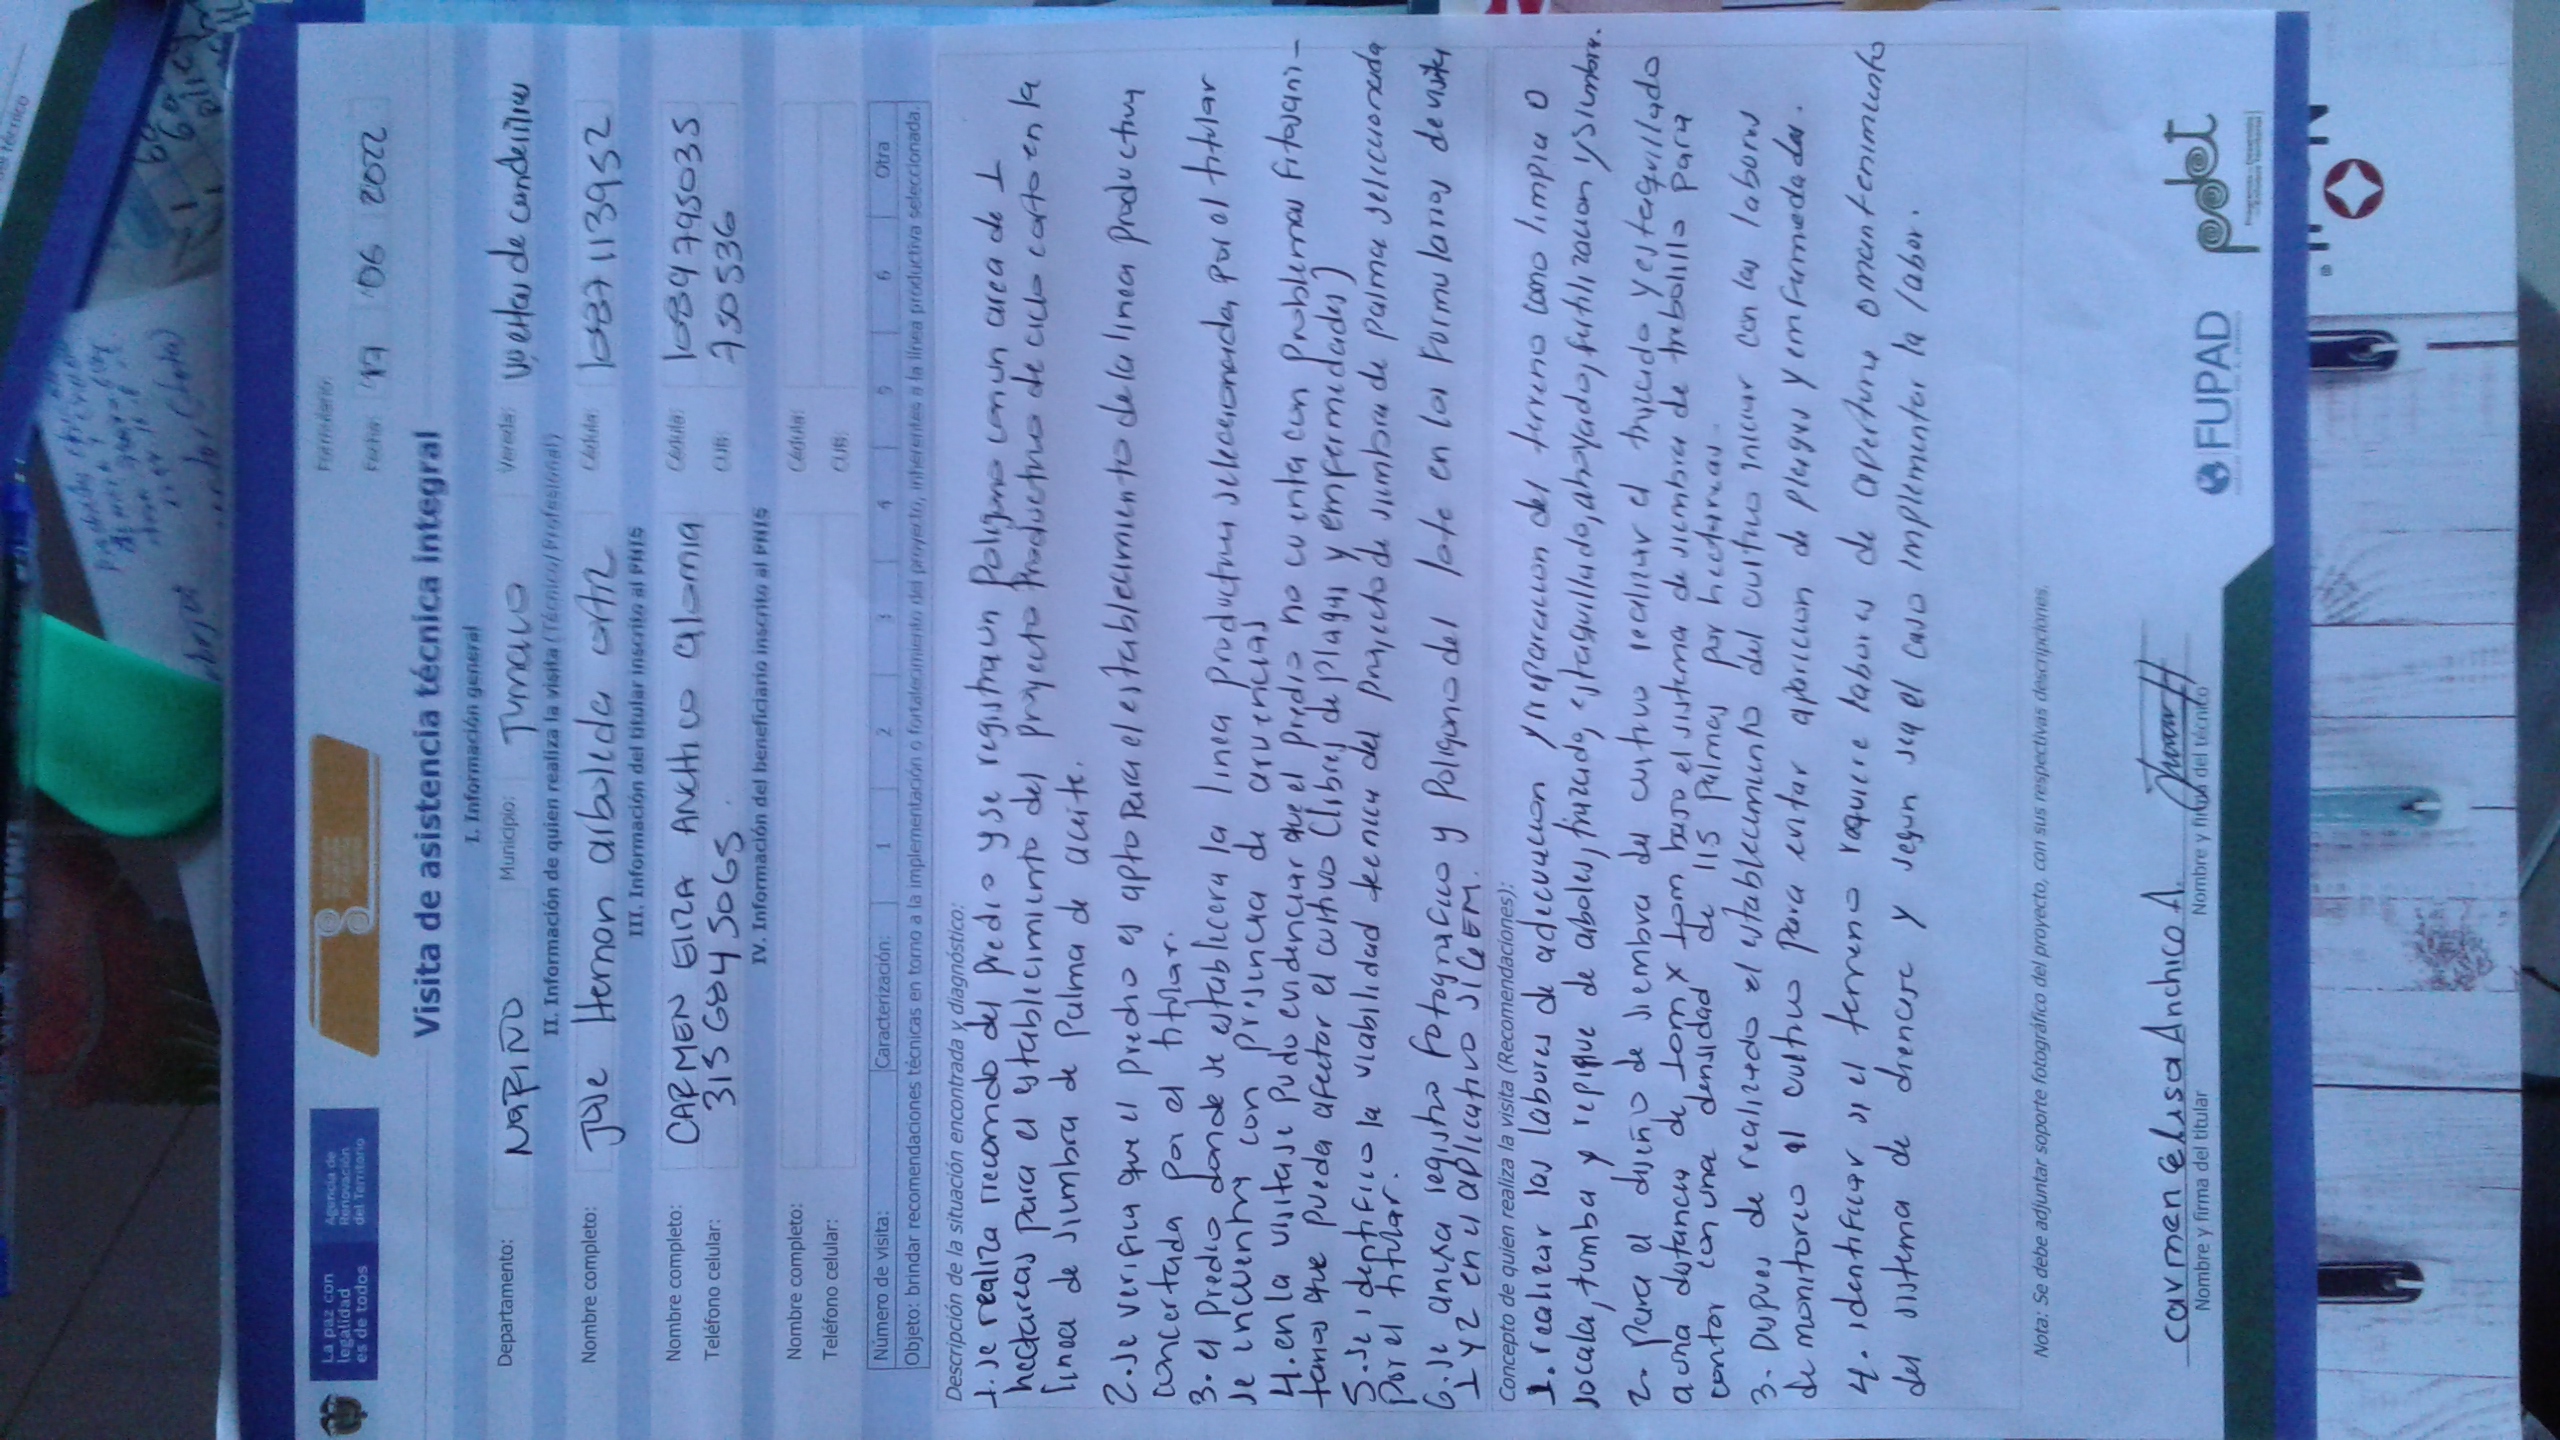 La paz con
legalidad
es de todos
Agencia de
Renovación
del Territorio
Formulario:
Fecha: 17 06 2022
Visita de asistencia técnica integral
I. Información general
Departamento: NARIÑO Municipio: Tumaco Vereda: vueltas de candelillas
II. Información de quien realiza la visita (Técnico/Profesional)
Nombre completo: Jose Hernan arboleda ortiz Cédula: 1087113952
III. Información del titular inscrito al PNIS
Nombre completo: CARMEN ELIZA ANCHICO alomia Cédula: 1089795035
Teléfono celular: 3156845065. CUB: 750536
IV. Información del beneficiario inscrito al PNIS
Nombre completo: Cédula:
Teléfono celular: CUB:
Número de visita: Caracterización: 1 2 3 4 5 6 Otra
Objeto: brindar recomendaciones técnicas en torno a la implementación o fortalecimiento del proyecto, inherentes a la línea productiva seleccionada.
Descripción de la situación encontrada y diagnóstico:
1. se realiza recorrido del predio y se registra un poligono con un area de 1
hectareas para el establecimiento del proyecto productivo de ciclo corto en la
linea de siembra de palma de aceite.
2. se verifica que el predio es apto para el establecimiento de la linea productiva
concertada por el titular.
3. el predio donde se establecera la linea productiva seleccionada por el titular
se encuentra con presencia de
4. en la visita se pudo evidenciar que el predio no cuenta con problemas fitosani-
tarios que pueda afectar el cultivo (libres de plagas y emfermedades)
5. se identifico la viabilidad tecnica del proyecto de siembra de palma seleccionada
por el titular.
6. se anexa registro fotografico y poligono del lote en los formularios de visita
1 y 2 en el aplicativo SIGEM.
Concepto de quien realiza la visita (Recomendaciones):
1. realizar las labores de adecuacion y reparacion del terreno como limpia o
socala, tumba y repique de arboles, trazado, estaquillado, ahoyado, fertilizacion y siembra.
2. Para el diseño de siembra del cultivo realizar el trazado y estaquillado
a una distancia de x bajo el sistema de siembra de trebolillo para
contar con una densidad de 115 palmas por hectareas.
3. Dspues de realizado el establecimiento del cultivo iniciar con las labores
de monitoreo al cultivo para evitar aparicion de plagas y emfermedades.
4. identificar si el terreno requiere labores de apertura o mantenimiento
del sistema de drenaje y segun sea el caso implementar la labor.
Nota: Se debe adjuntar soporte fotográfico del proyecto, con sus respectivas descripciones.
carmen elisa Anchico A.
Nombre y firma del titular
Nombre y firma del técnico
FUPAD
pdet